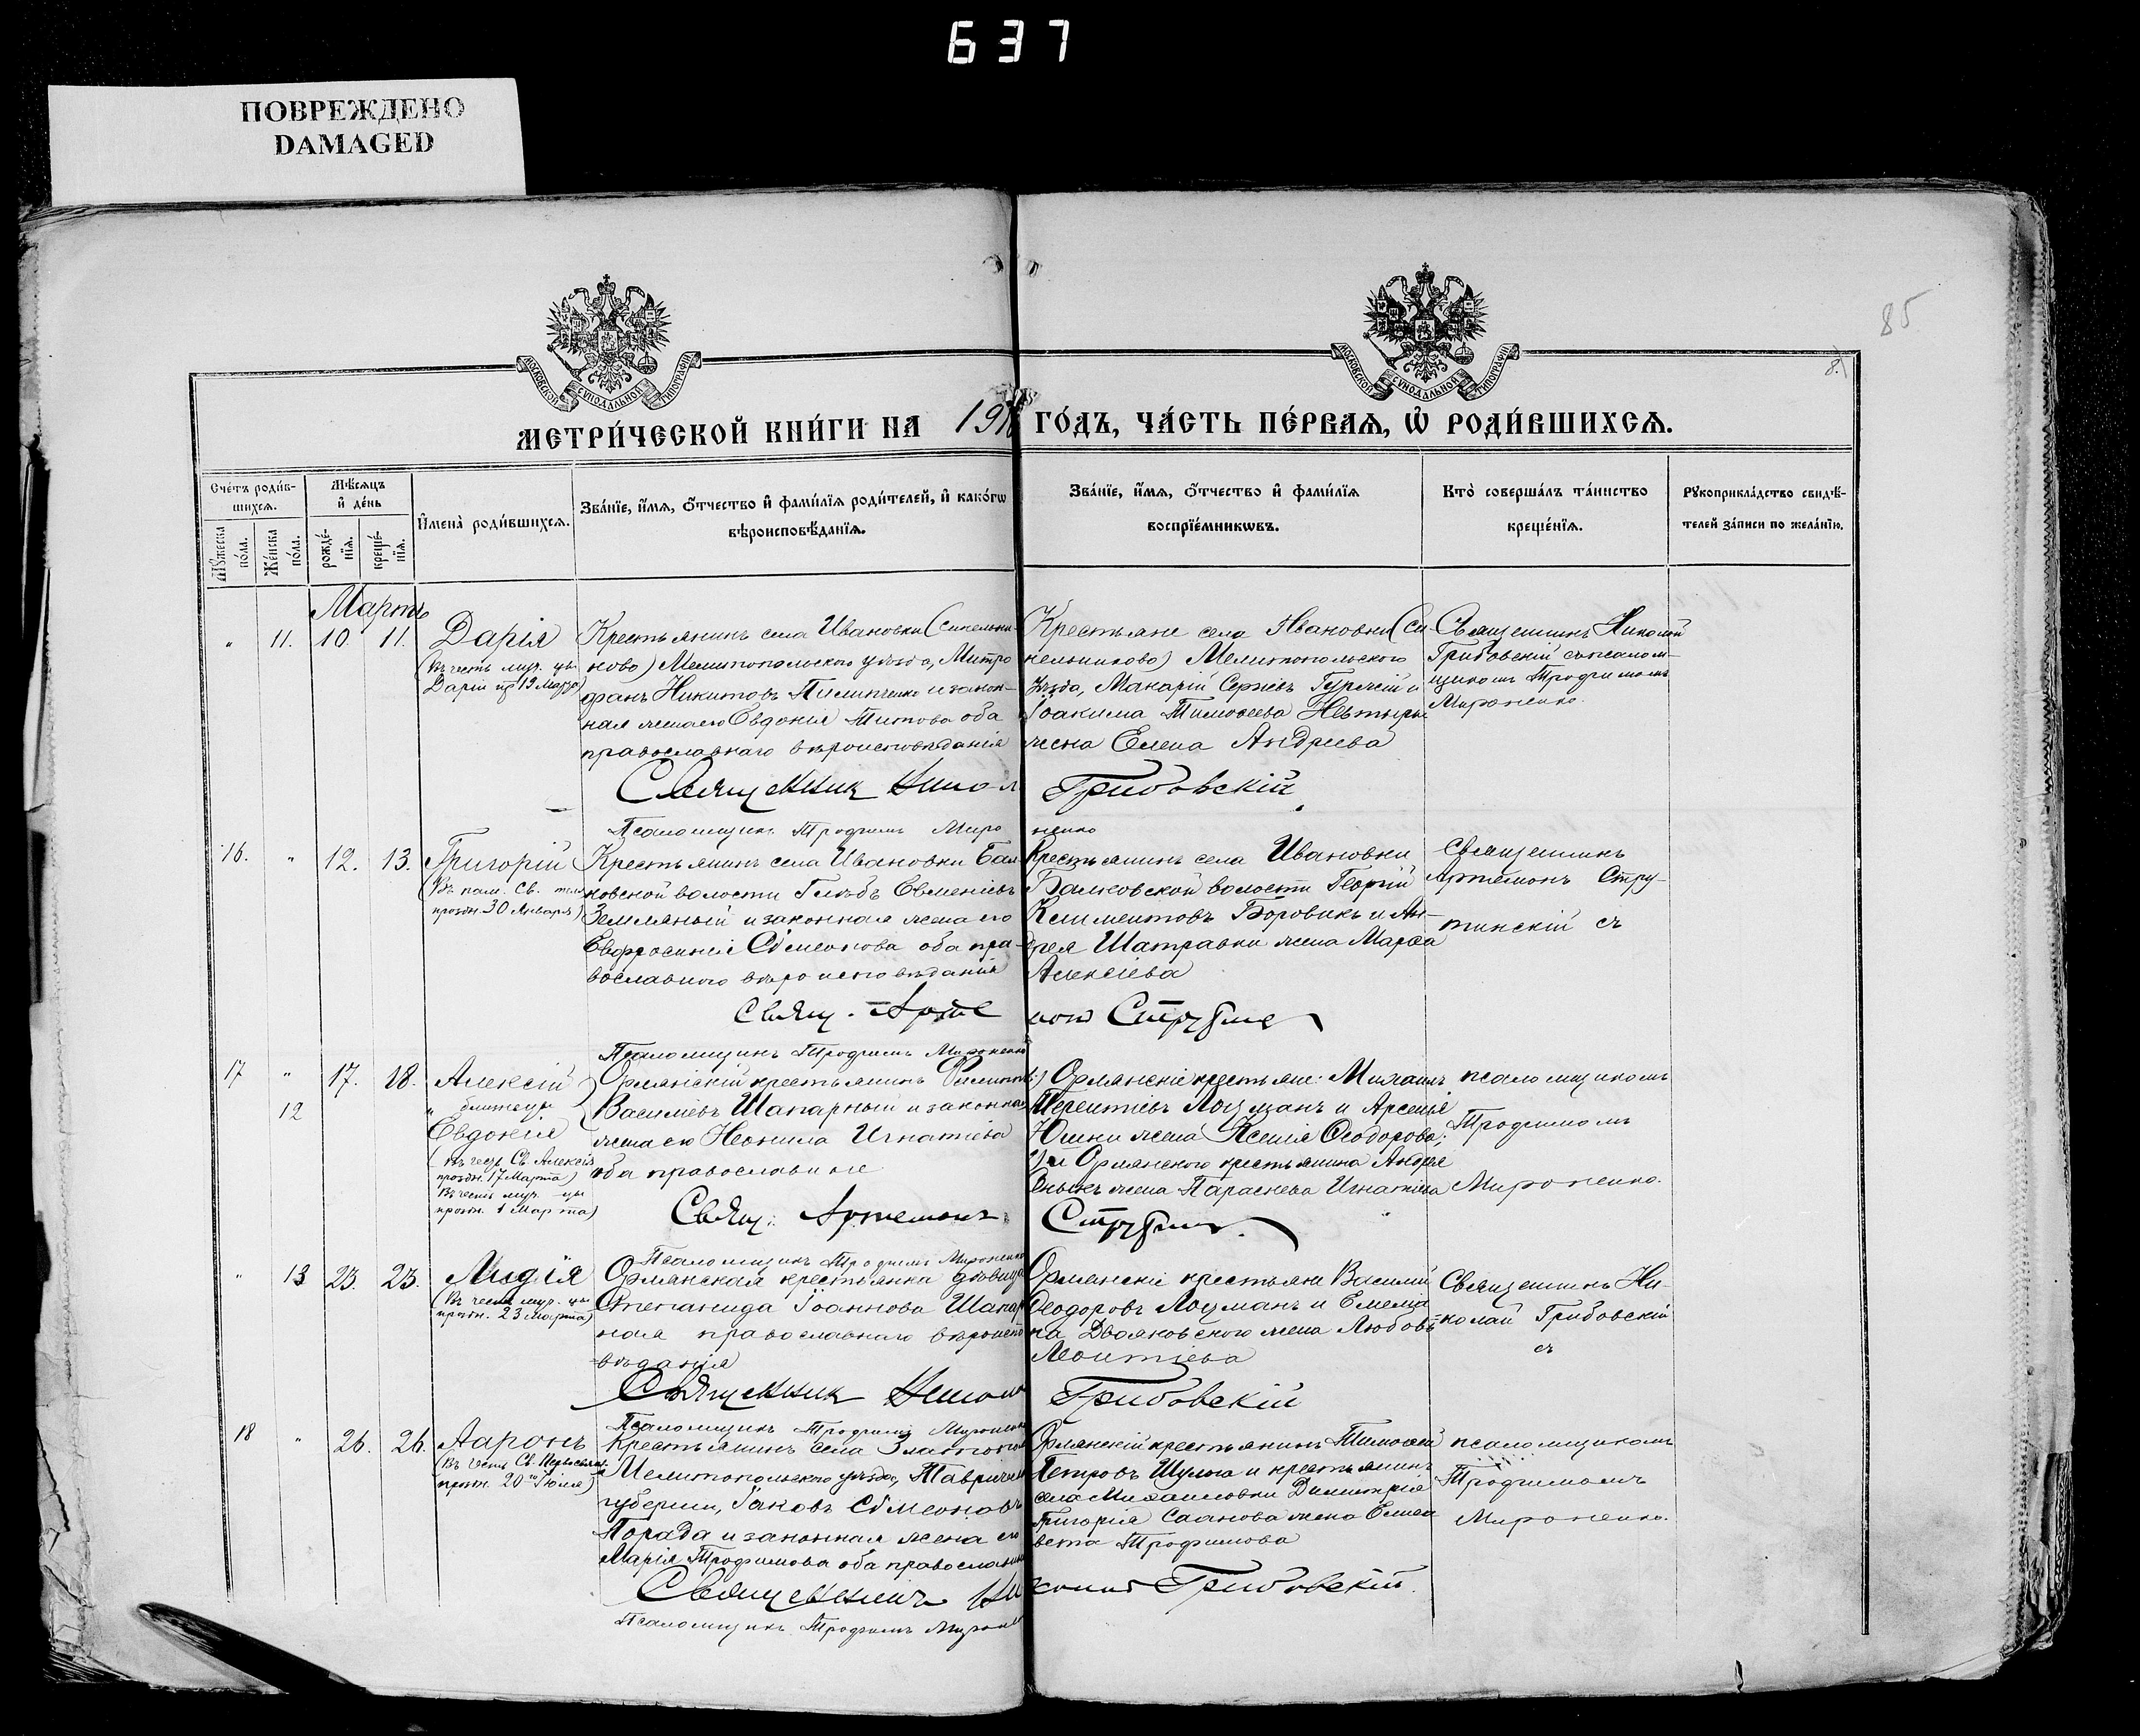 637
ПОВРЕЖДЕНО
DAMAGED
85
МОСКОВСКОЙ СѴНОДАЛЬНОЙ ТИПОГРАФІИ
МОСКОВСКОЙ СѴНОДАЛЬНОЙ ТИПОГРАФІИ
МЕТРИ́ЧЕСКОЙ КНИ́ГИ НА 191 ГО́ДЪ, ЧА́СТЬ ПЕ́РВАѦ, Ѡ҆ РОДИ́ВШИХСѦ.
Сче́тъ роди́в-
шихсѧ.
Мꙋ́жеска по́ла.
Же́нска по́ла.
Мѣ́сѧцъ
и҆ де́нь
рожде́-
нїѧ.
креще́-
нїѧ.
И҆мена̀ роди́вшихсѧ.
Зва́нїе, и҆́мѧ, ѻ҆́тчество и҆ фами́лїѧ роди́телей, и҆ како́гѡ
вѣроисповѣ́данїѧ.
Зва́нїе, и҆́мѧ, ѻ҆́тчество и҆ фами́лїѧ
воспрїе́мникѡвъ.
Кто̀ соверша́лъ та́инство
креще́нїѧ.
Рꙋкоприкла́дство свидѣ́-
телей за́писи по жела́нїю.
Мартъ
" 11. 10. 11. Дарія
(Въ честь муч. цы
Даріи пр 19 Марта)
Крестьянинъ села Ивановки (Синельни-
ково) Мелитопольскаго уѣзда, Митро
фанъ Никитовъ Пилипченко и закон-
ная жена его Евдокія Титова оба
православнаго вѣроисповѣданія
Крестьяне села Ивановки (Си-
нельниково) Мелитопольскаго
уѣзда, Макарій Сергіевъ и
Іоакима Тимоѳеева
жена Елена Андреева
Священникъ Николай
Грибовскій съ псалом-
щикомъ Трофимомъ
Мироненко.
Священник Никол Грибовскій
Псаломщикъ Трофимъ Миро ненко
16. " 12. 13. Григорій
(Въ пам. Св.
праздн. 30 Января)
Крестьянинъ села Ивановки Бал
ковской волости Глѣбъ Евменіевъ
Земляный и законная жена его
Евфросинія Сѵмеонова оба пра-
вославнаго вѣроисповѣданія
Крестьянинъ села Ивановки
Балковской волости Георгій
Климентовъ Боровикъ и Ан-
дрея Шатравки жена Марѳа
Алексіева
Священникъ
Артемонъ Стру-
тинскій съ
Свящ. Арте монъ
Псаломщикъ Трофимъ Мироненко
17 " 17. 18. Алексій
12 " близнецы.
Евдокія
(Въ честь Св. Алексія
праздн. 17 Марта)
Въ честь муч. цы
праздн. 1 Марта)
Орлянскій крестьянинъ Филиппъ
Василіевъ Шапарный и законная
жена его Неонила Игнатіева
оба православные
1) Орлянскіе крестьяне: Михаилъ
Терентіевъ Лоцманъ и Арсенія
жена Ксенія Ѳеодорова;
2) и Орлянскаго крестьянина Андрея
жена Параскева Игнатіева
псаломщикомъ
Трофимомъ
Мироненко.
Свящ: Артемонъ
Псаломщикъ Трофимъ Мироненко
" 13 23. 23. Лидія
(Въ честь муч. цы
праздн. 23 Марта)
Орлянская крестьянка дѣвица
Степанида Іоаннова Шапар
ная православнаго вѣроиспо
вѣданія
Орлянскіе крестьяне Василій
Ѳеодоровъ Лоцманъ и Емеліа-
на Двояковского жена Любовь
Леонтіева
Священникъ Ни-
колай Грибовскій
съ
Священник Никола Грибовскій
Псаломщикъ Трофимъ Мироненко
18 " 26. 26. Ааронъ
(Въ честь Св. Первосвящ.
праздн. 20го Іюля)
Крестьянинъ села Златопол
Мелитопольскаго уѣзда, Тавричес
губерніи, Іаковъ Сѵмеоновъ
Порада и законная жена его
Марія Трофимова оба православные
Орлянскій крестьянинъ Тимоѳей
Петровъ Шульга и крестьянинъ
села Михайловки Димитрія
Григорія жена Елиса
вета Трофимова
псаломщикомъ
Трофимомъ
Мироненко.
Священникъ Ни колай Грибовскій.
Псаломщикъ Трофимъ Мироненко